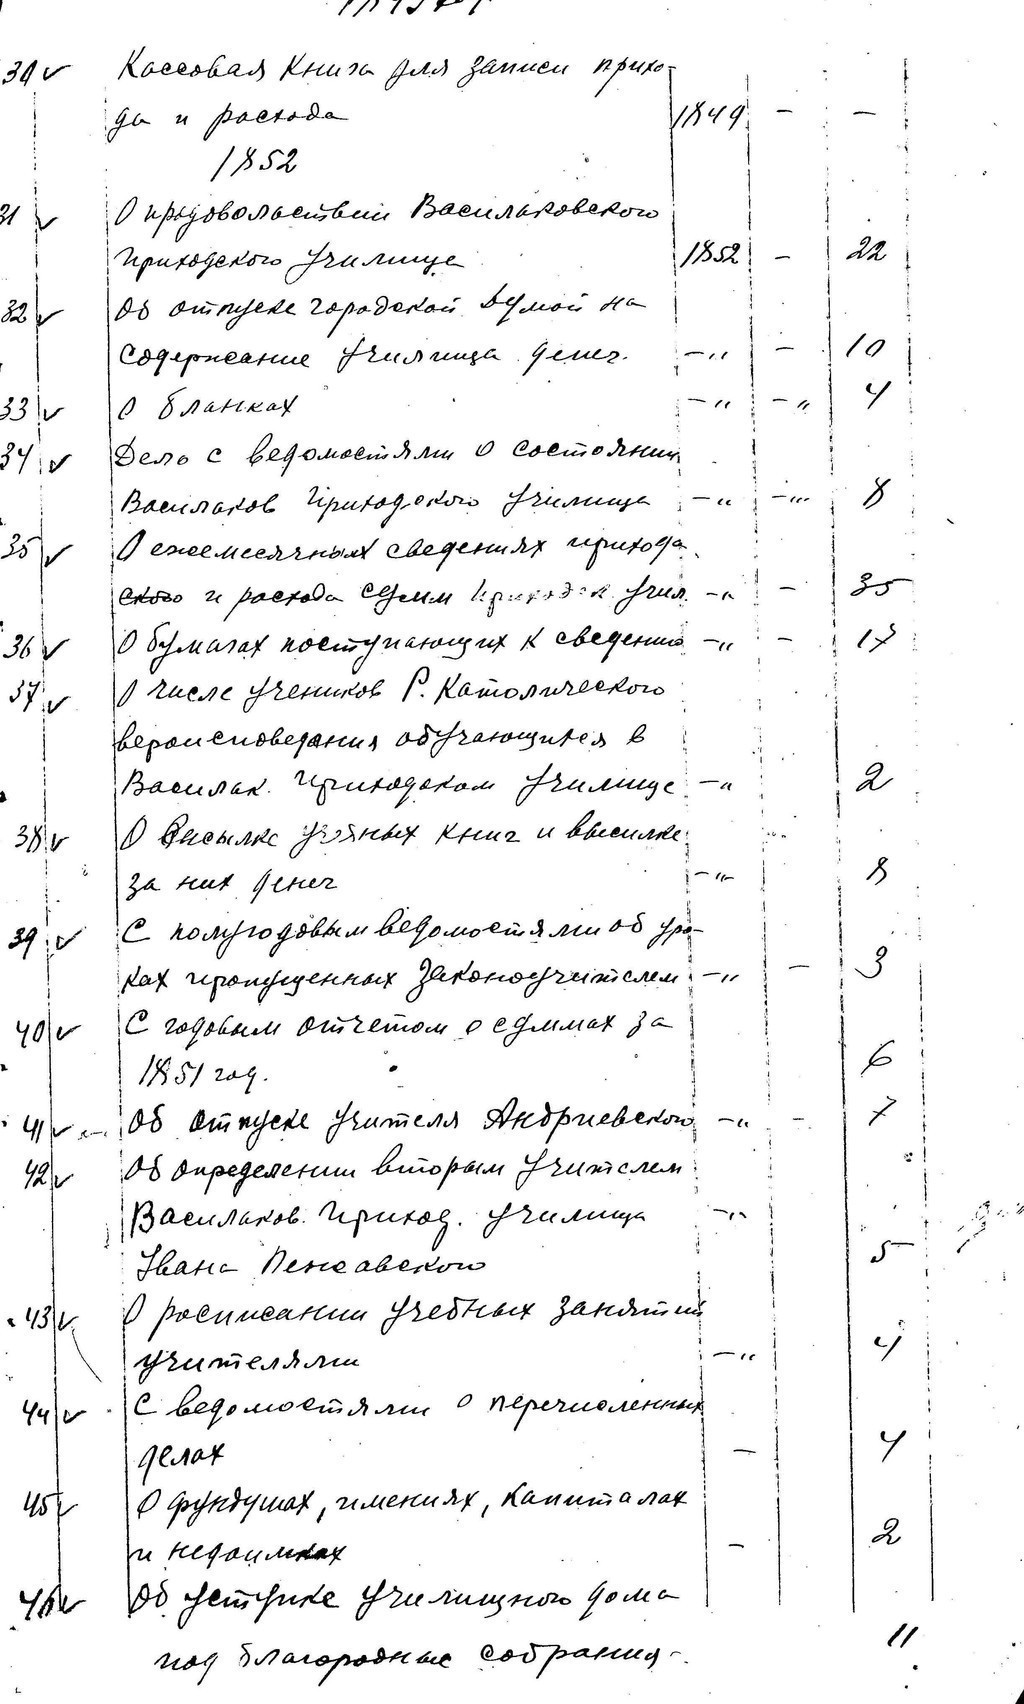 30 ✓ Кассовая книга для записи прихо-
да и расхода 1849 - -
1852
31 ✓ О продовольствии Васильковского
Приходского училища 1852 - 22
32 ✓ Об отпуске городской Думой на
содержание училища денег. -"- - 10
33 ✓ О бланках -" -" 4
34 ✓ Дело с ведомостями о состоянии
Васильков Приходского училища -" -" 8
35 ✓ О ежемесячных сведениях прихода
и расхода сумм приходск. учил. -" - 35
36 ✓ О бумагах поступающих к сведению -" - 17
37 ✓ О числе учеников Р. Католического
вероисповедания обучающихся в
Васильк. Приходском училище -" 2
38 ✓ О высылке учебных книг и высылке
за них денег -" 8
39 ✓ С полугодовым ведомостями об уро-
ках пропущенных Законоучителем -" - 3
40 ✓ С годовым отчетом о суммах за
1851 год. 6
41 ✓ Об отпуске учителя Андриевского -" - 7
42 ✓ Об определении вторым учителем
Васильков. Приход. училища -"
Ивана 5
43 ✓ О росписании учебных занятий
учителями -" 4
44 ✓ С ведомостями о перечисленных
делах - 4
45 ✓ О фундушах, имениях, капиталах
и недоимках - 2
46 ✓ Об уступке училищного дома
под благородные собрания - 11